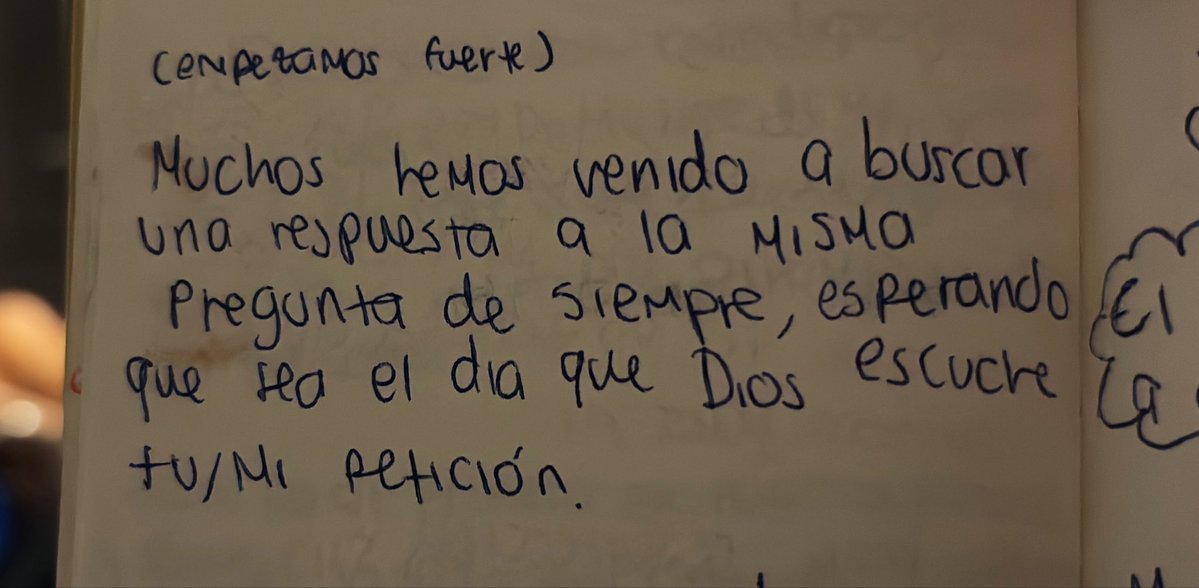 (empezamos fuerte)
Muchos hemos venido a buscar
una respuesta a la misma
pregunta de siempre, esperando
que sea el dia que Dios escuche
tu/mi petición.
El
la